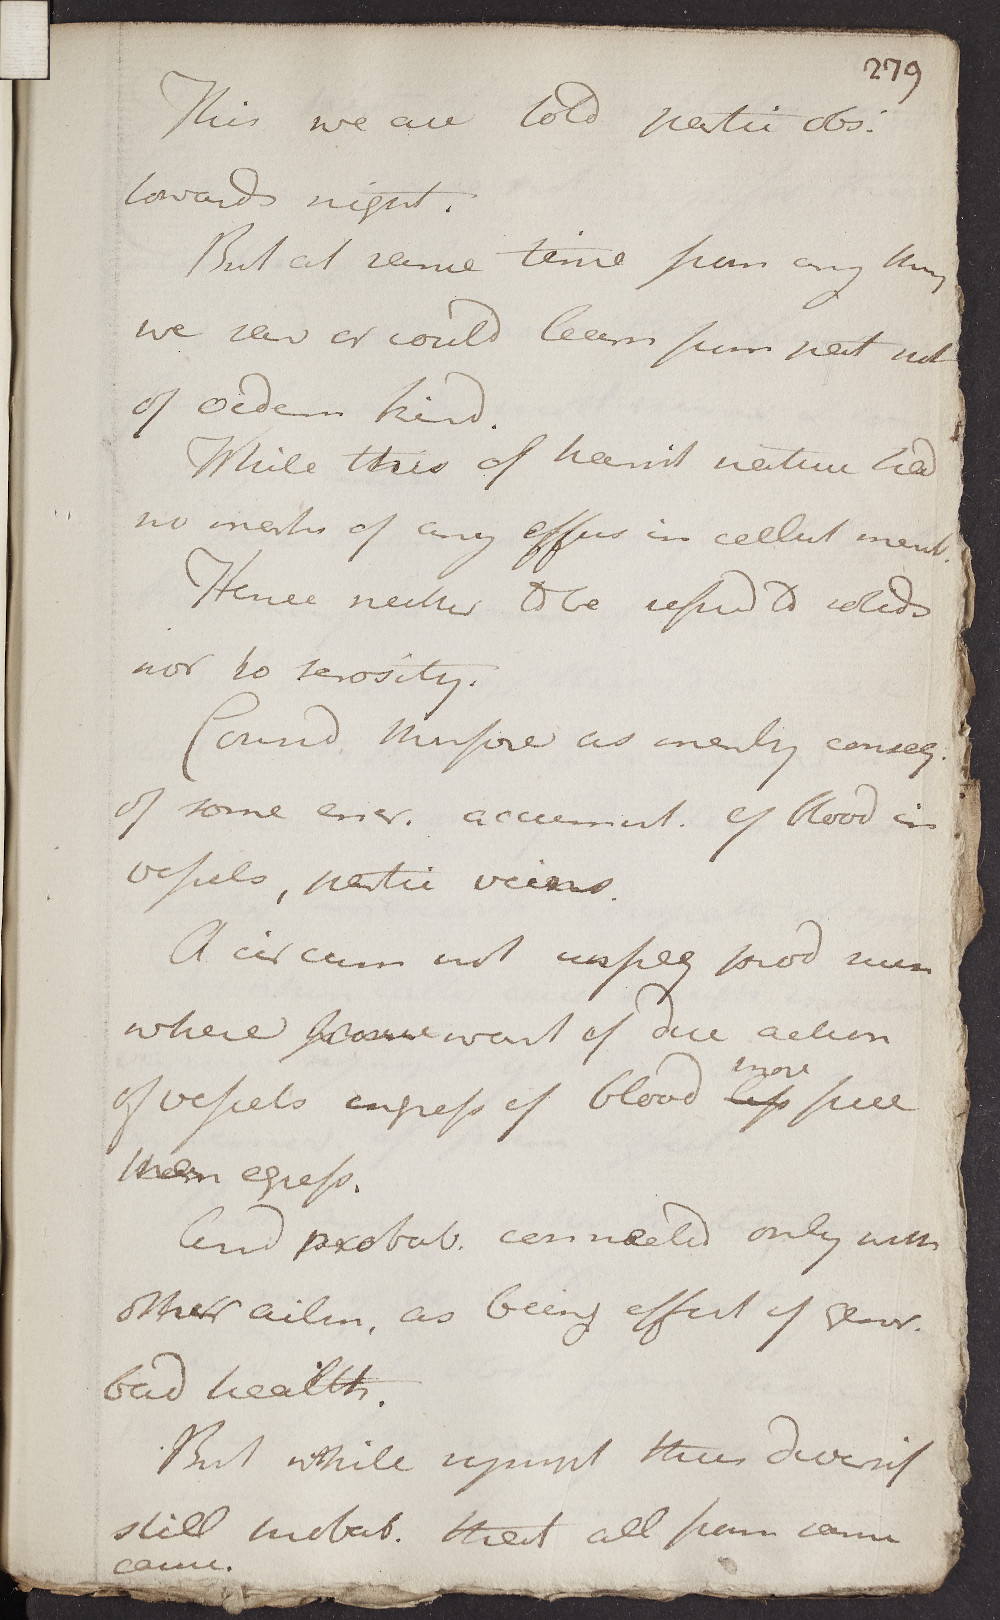 279
This we are told partic obs.
towards night.
But at same time from any thing
we saw or could learn from pat not
of oedem kind.
While this of transit nature had
no marks of any effus in cellul memb.
Hence neither to be refered to solids
nor to serosity.
Consid therefore as merely conseq.
of some accumul. of blood in
vessels, partic veins.
A circum not unfreq prod
where from want of due action
of vessels ingress of blood more
less free
than egress.
And probab. connected only with
other ailm. as being effect of gener.
bad health.
But while sympt thus diversif
still probab. that all from same
cause.